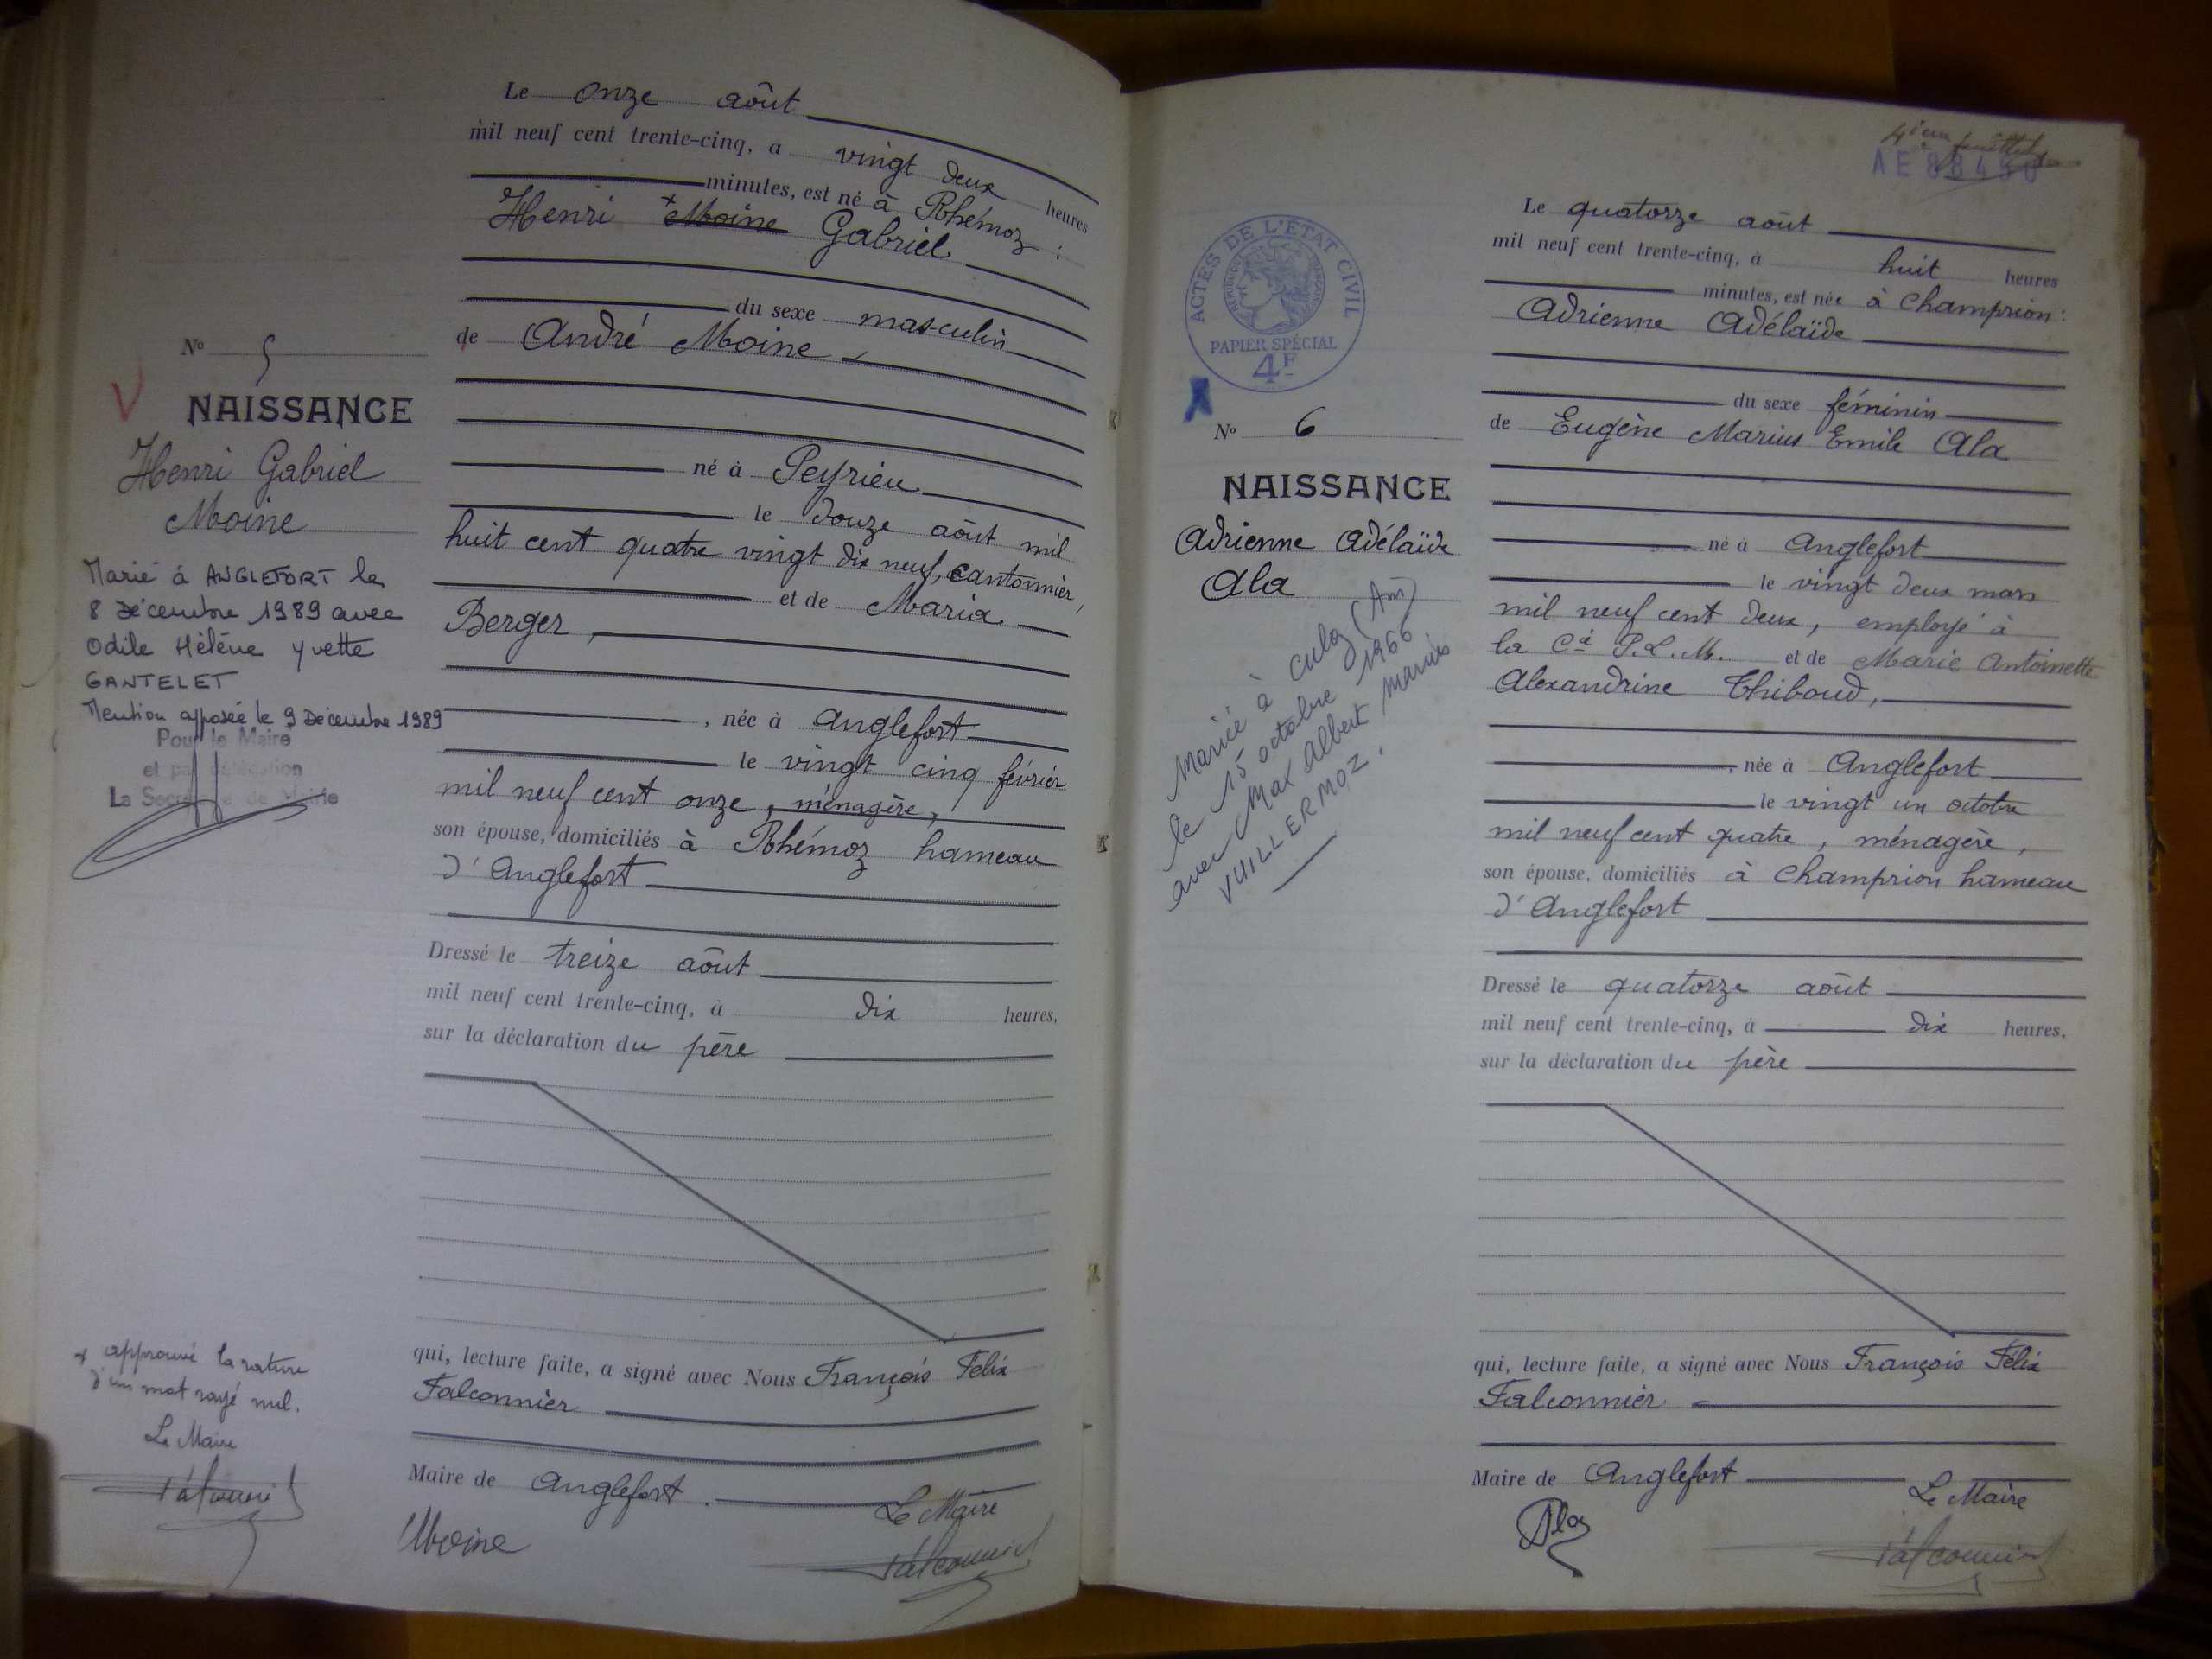 Le onze août
mil neuf cent trente-cinq, a vingt deux heures
minutes, est né à Rhémoz :
Henri + Moine Gabriel
du sexe masculin
de André Moine
né à Peyrieu
le douze août mil
huit cent quatre vingt dix neuf, cantonnier,
et de Maria
Berger,
, née à Anglefort
le vingt cinq février
mil neuf cent onze, ménagère,
son épouse, domiciliés à Rhémoz hameau
d'Anglefort
Dressé le treize août
mil neuf cent trente-cinq, à dix heures,
sur la déclaration du père
qui, lecture faite, a signé avec Nous François Félix
Falconnier
Maire de Anglefort.
Le Maire
Moine
Falconnier
No 5
V
NAISSANCE
Henri Gabriel
Moine
Marié à ANGLEFORT le
8 Décembre 1989 avec
Odile Hélène Yvette
GANTELET
Mention apposée le 9 Décembre 1989
Pour le Maire
et par délégation
La Secrétaire de Mairie
+ approuvé la rature
d'un mot rayé nul.
Le Maire
Falconnier
4ième feuillet
ACTES DE L'ÉTAT CIVIL
PAPIER SPÉCIAL
4F
No 6
NAISSANCE
Adrienne Adélaïde
Ala
Mariée à Culoz (Ain)
le 15 octobre 1966
avec Max Albert Marius
VUILLERMOZ.
Le quatorze août
mil neuf cent trente-cinq, à huit heures
minutes, est née à Champrion :
Adrienne Adélaïde
du sexe féminin
de Eugène Marius Emile Ala
né à Anglefort
le vingt deux mars
mil neuf cent deux, employé à
la Cie P.L.M. et de Marie Antoinette
Alexandrine Thiboud,
, née à Anglefort
le vingt un octobre
mil neuf cent quatre, ménagère,
son épouse, domiciliés à Champrion hameau
d'Anglefort
Dressé le quatorze août
mil neuf cent trente-cinq, à dix heures,
sur la déclaration du père
qui, lecture faite, a signé avec Nous François Félix
Falconnier
Maire de Anglefort
Le Maire
Ala
Falconnier